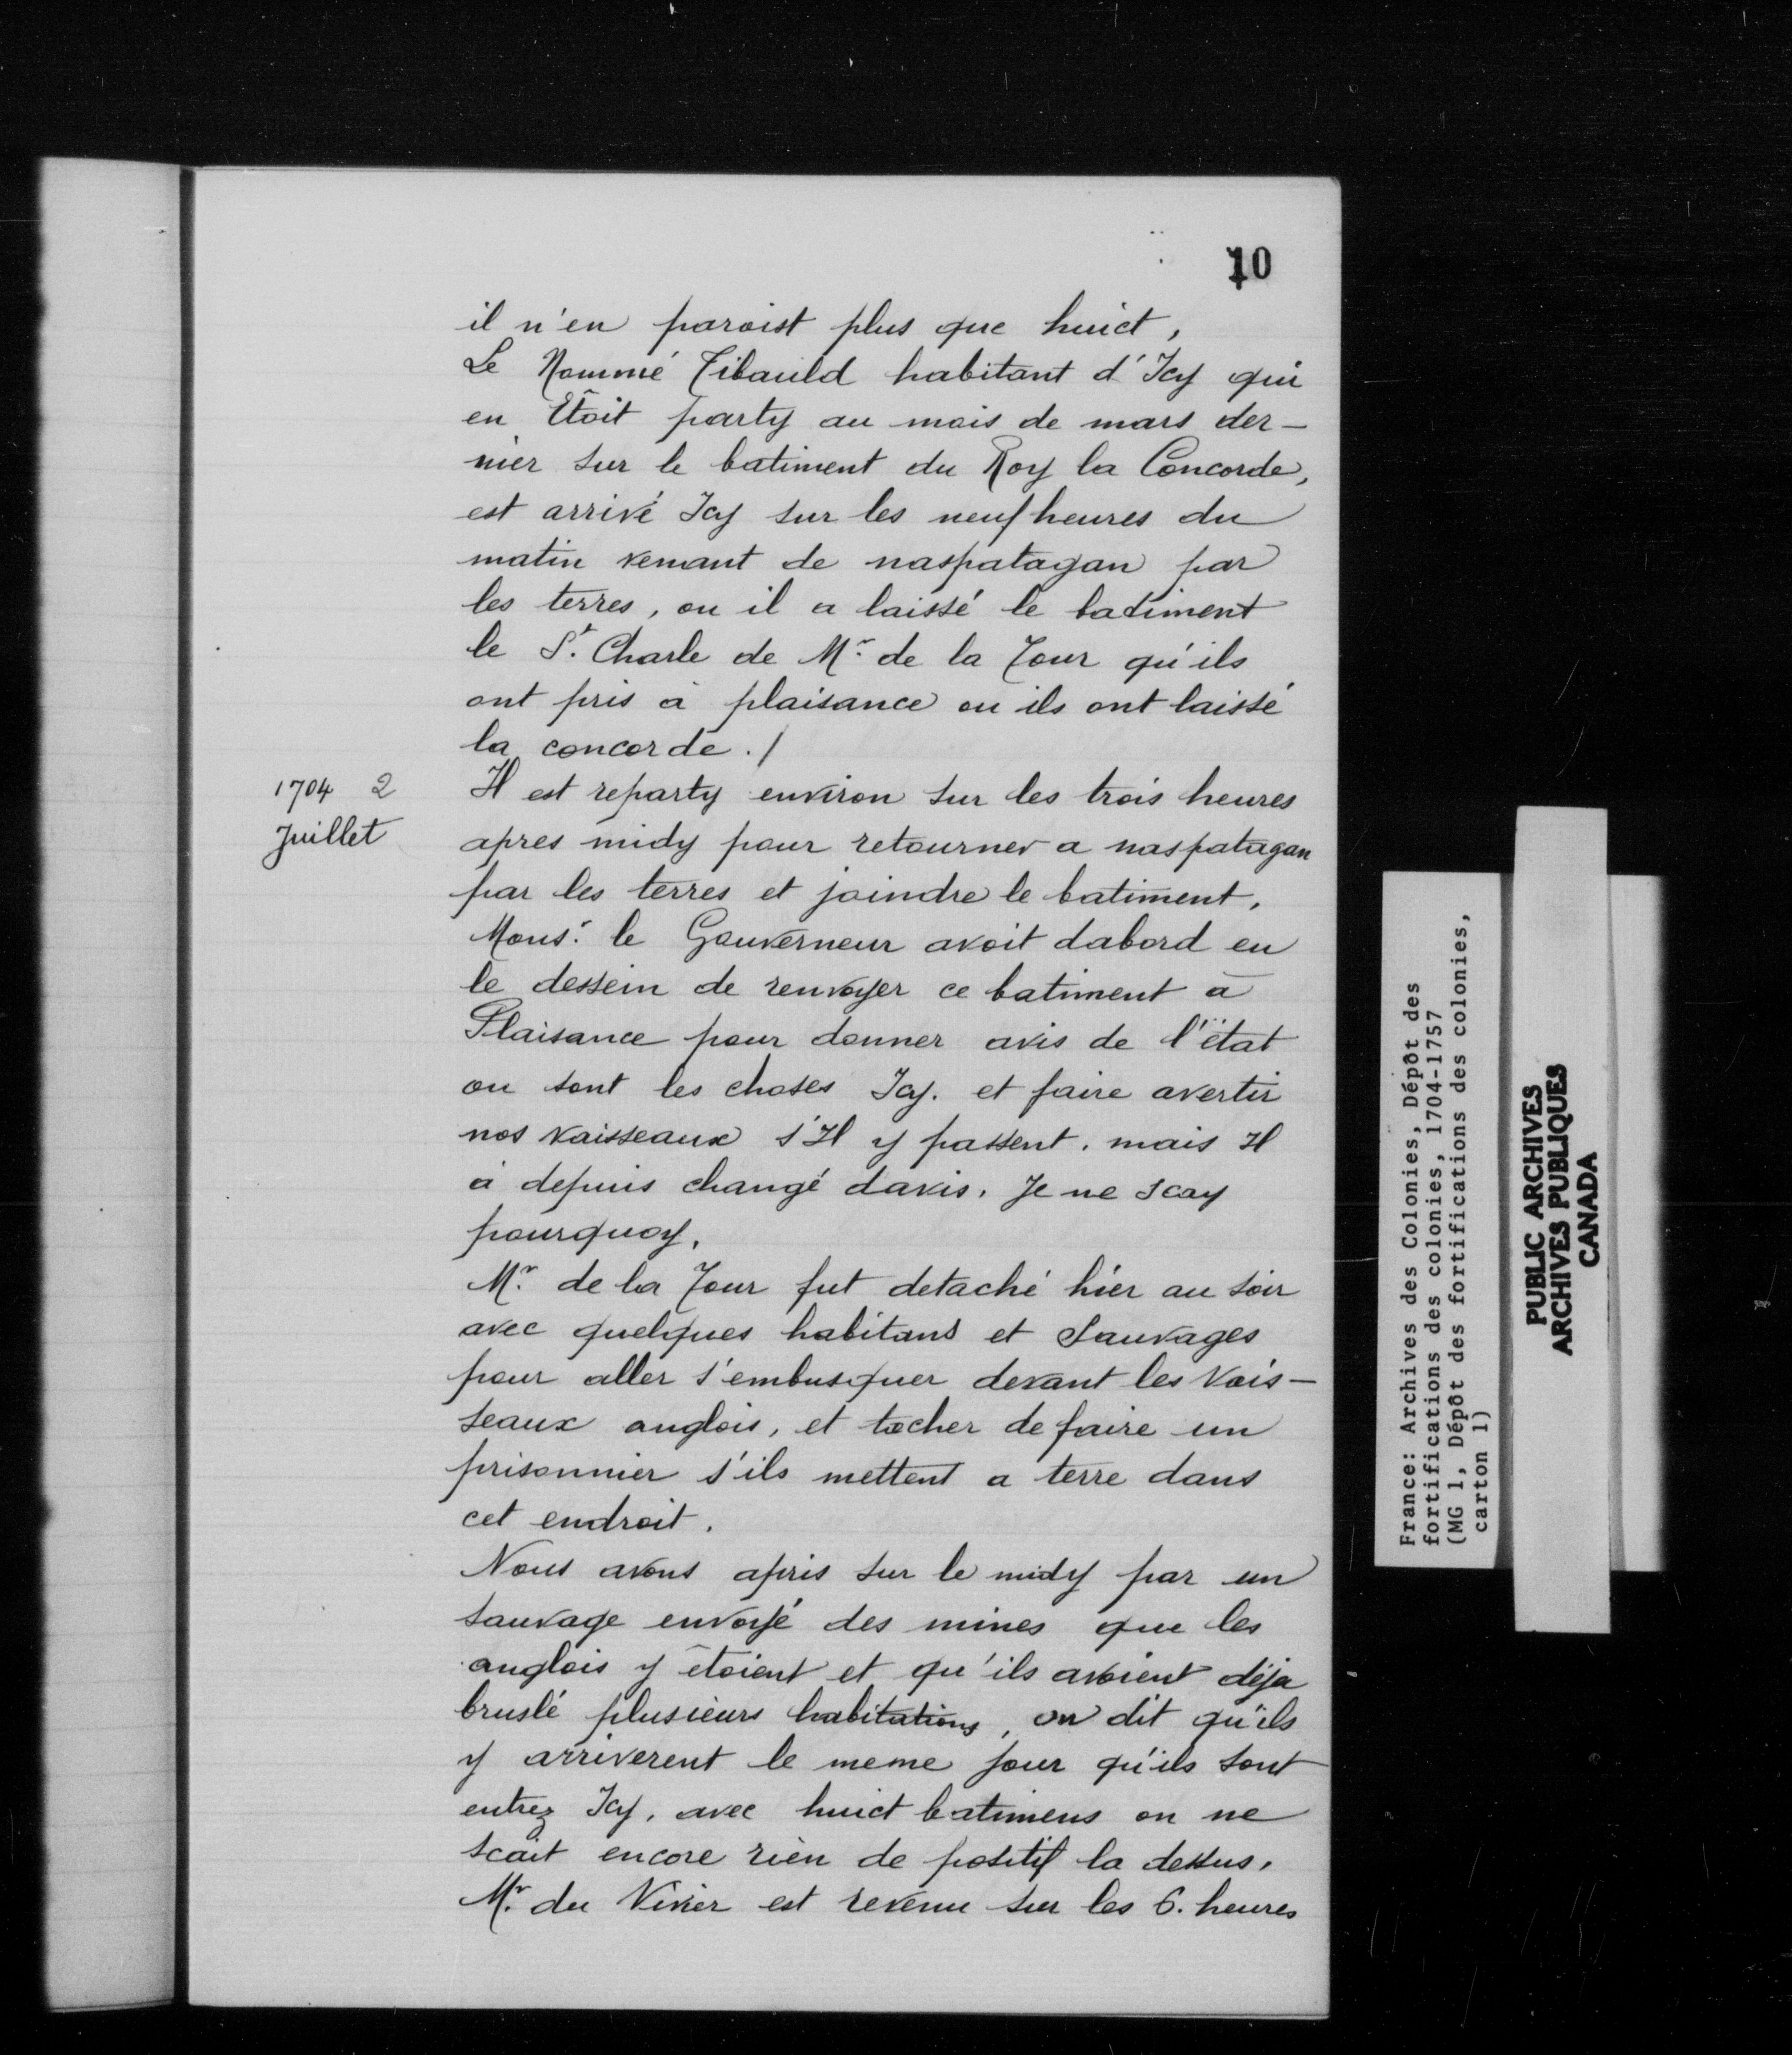 10
il n'en paroist plus que huict,
Le Nommé Tibauld habitant d'Icy qui
en Etoit party au mois de mars der-
nier sur le batiment du Roy la Concorde,
est arrivé Icy sur les neuf heures du
matin venant de naspatagan par
les terres, ou il a laissé le batiment
le St. Charle de Mr. de la Tour qu'ils
ont pris à plaisance ou ils ont laissé
la concorde./
1704 2
Juillet
Il est reparty environ sur les trois heures
apres midy pour retourner a naspatagan
par les terres et joindre le batiment.
Monsr. le Gouverneur avoit dabord eu
le dessein de renvoyer ce batiment à
Plaisance pour donner avis de l'état
ou sont les choses Icy. et faire avertir
nos vaisseaux s'Il y passent. mais Il
à depuis changé davis. Je ne scay
pourquoy.
Mr. de la Tour fut detaché hier au soir
avec quelques habitans et Sauvages
pour aller s'embusquer devant les Vais-
seaux anglois, et tacher de faire un
prisonnier s'ils mettent a terre dans
cet endroit.
Nous avons apris sur le midy par un
sauvage envoyé des mines que les
anglois y étoient et qu'ils avoient déja
bruslé plusieurs habitations, on dit qu'ils
y arriverent le meme jour qu'ils sont
entrez Icy, avec huict batimens on ne
scait encore rien de positif la dessus.
Mr. du Vivier est revenu sur les 6. heures
France: Archives des Colonies, Dépôt des
fortifications des colonies, 1704-1757
(MG 1, Dépôt des fortifications des colonies,
carton 1)
PUBLIC ARCHIVES
ARCHIVES PUBLIQUES
CANADA